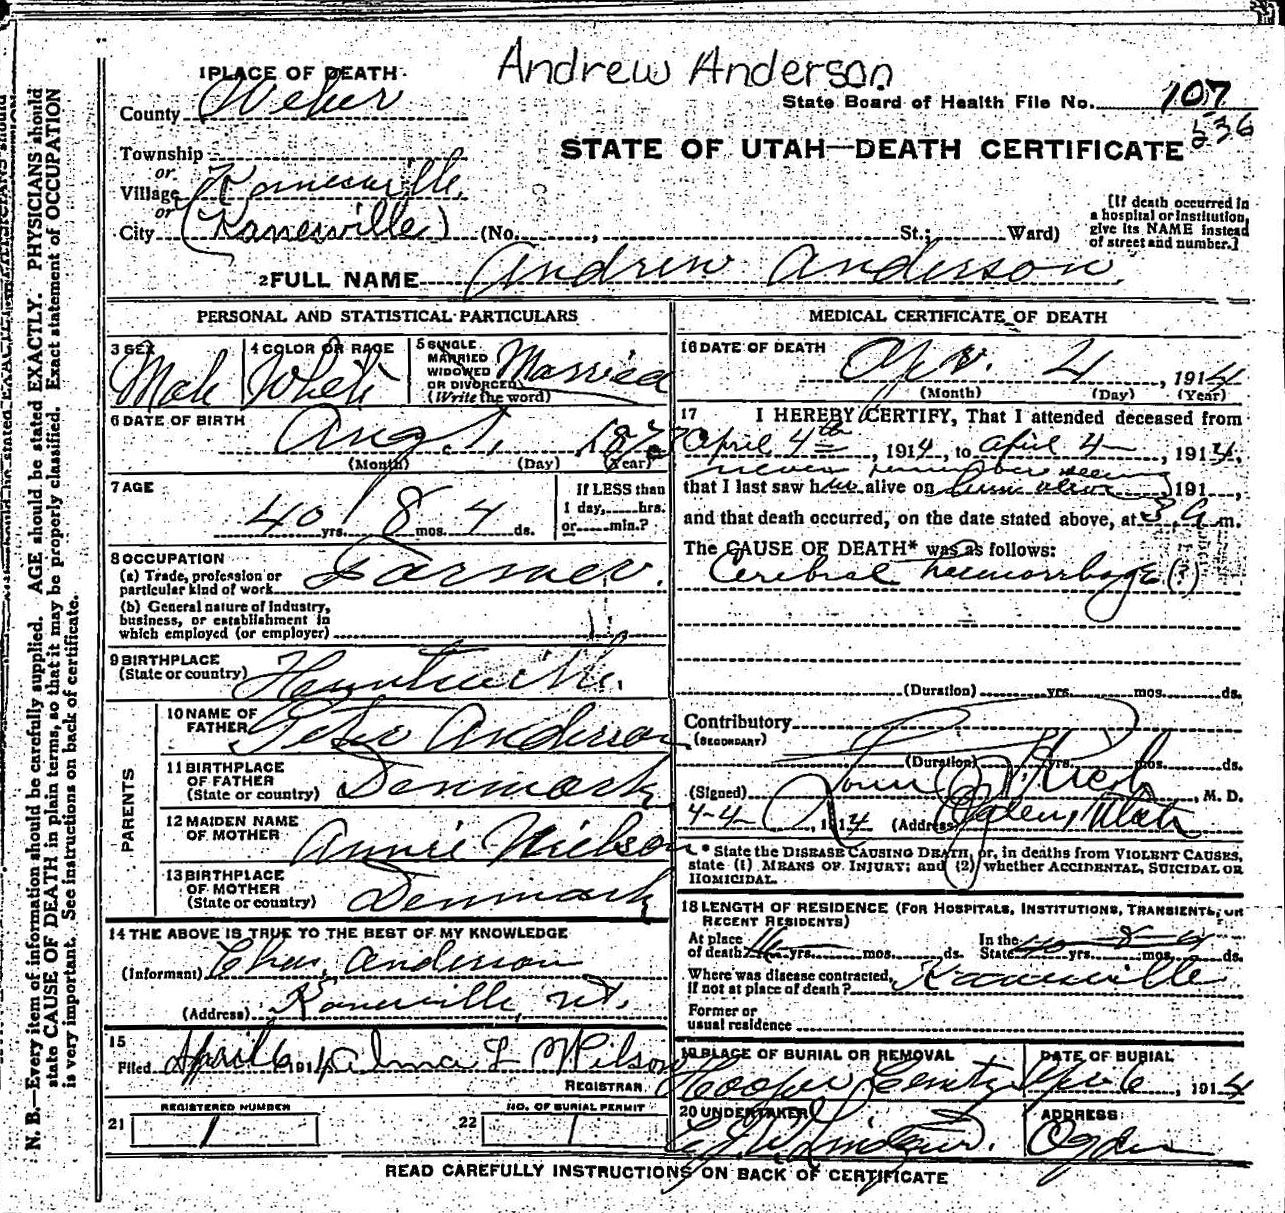 Andrew Anderson
1 PLACE OF DEATH
County Weber
State Board of Health File No. 107
536
Township
or
Village Kanesville
or
City (Kanesville) (No. , St.; Ward)
STATE OF UTAH—DEATH CERTIFICATE
[If death occurred in
a hospital or institution,
give its NAME instead
of street and number.]
2 FULL NAME Andrew Anderson
PERSONAL AND STATISTICAL PARTICULARS
3 SEX Male
4 COLOR OR RACE White
5 SINGLE
MARRIED
WIDOWED
OR DIVORCED
(Write the word) Married
6 DATE OF BIRTH Aug. 1,
(Month) (Day) (Year)
7 AGE 40 yrs. 8 mos. 4 ds.
If LESS than
1 day, hrs.
or min.?
8 OCCUPATION
(a) Trade, profession or
particular kind of work Farmer.
(b) General nature of Industry,
business, or establishment in
which employed (or employer)
9 BIRTHPLACE
(State or country) Huntsville.
PARENTS
10 NAME OF
FATHER Peter Anderson
11 BIRTHPLACE
OF FATHER
(State or country) Denmark
12 MAIDEN NAME
OF MOTHER Annie Nielson
13 BIRTHPLACE
OF MOTHER
(State or country) Denmark
14 THE ABOVE IS TRUE TO THE BEST OF MY KNOWLEDGE
(Informant) Chas. Anderson
(Address) Kanesville, Ut.
15
Filed April 6 191 Alma L Wilson
REGISTRAR
REGISTERED NUMBER
21 1
NO. OF BURIAL PERMIT
22 1
MEDICAL CERTIFICATE OF DEATH
16 DATE OF DEATH Apr. 4, 1914
(Month) (Day) (Year)
17 I HEREBY CERTIFY, That I attended deceased from
April 4th, 1914, to April 4, 1914,
never remembered seeing
that I last saw him alive on him alive, 191 ,
and that death occurred, on the date stated above, at 3 A m.
The CAUSE OF DEATH* was as follows:
Cerebral haemorrhage (?)
(Duration) yrs. mos. ds.
Contributory
(SECONDARY)
(Duration) yrs. mos. ds.
(Signed) , M. D.
4-4, 1914 (Address) Ogden, Utah
* State the DISEASE CAUSING DEATH, or, in deaths from VIOLENT CAUSES,
state (1) MEANS OF INJURY; and (2) whether ACCIDENTAL, SUICIDAL OR
HOMICIDAL.
18 LENGTH OF RESIDENCE (FOR HOSPITALS, INSTITUTIONS, TRANSIENTS, OR
RECENT RESIDENTS)
At place
of death yrs. mos. ds.
In the
State 40 yrs. 8 mos. 4 ds.
Where was disease contracted,
If not at place of death? Kanesville
Former or
usual residence
19 PLACE OF BURIAL OR REMOVAL
Hooper Cemty
DATE OF BURIAL
Apr 6, 1914
20 UNDERTAKER
ADDRESS
Ogden
READ CAREFULLY INSTRUCTIONS ON BACK OF CERTIFICATE
N. B.—Every item of information should be carefully supplied. AGE should be stated EXACTLY. PHYSICIANS should
state CAUSE OF DEATH in plain terms, so that it may be properly classified. Exact statement of OCCUPATION
is very important. See instructions on back of certificate.